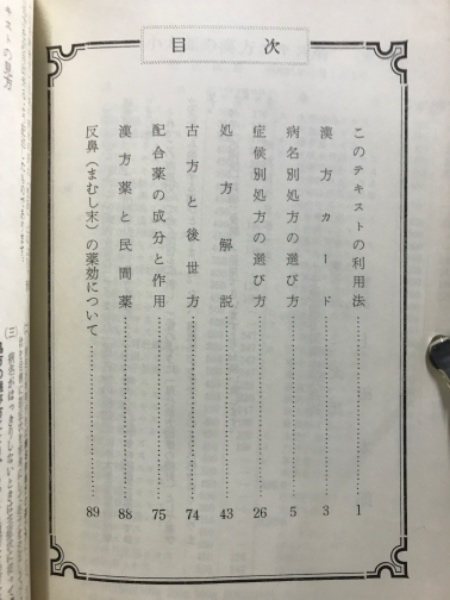 目次
このテキストの利用法 1
漢方カード 3
病名別処方の選び方 5
症候別処方の選び方 26
処方解説 43
古方と後世方 74
配合薬の成分と作用 75
漢方薬と民間薬 88
反鼻（まむし末）の薬効について 89